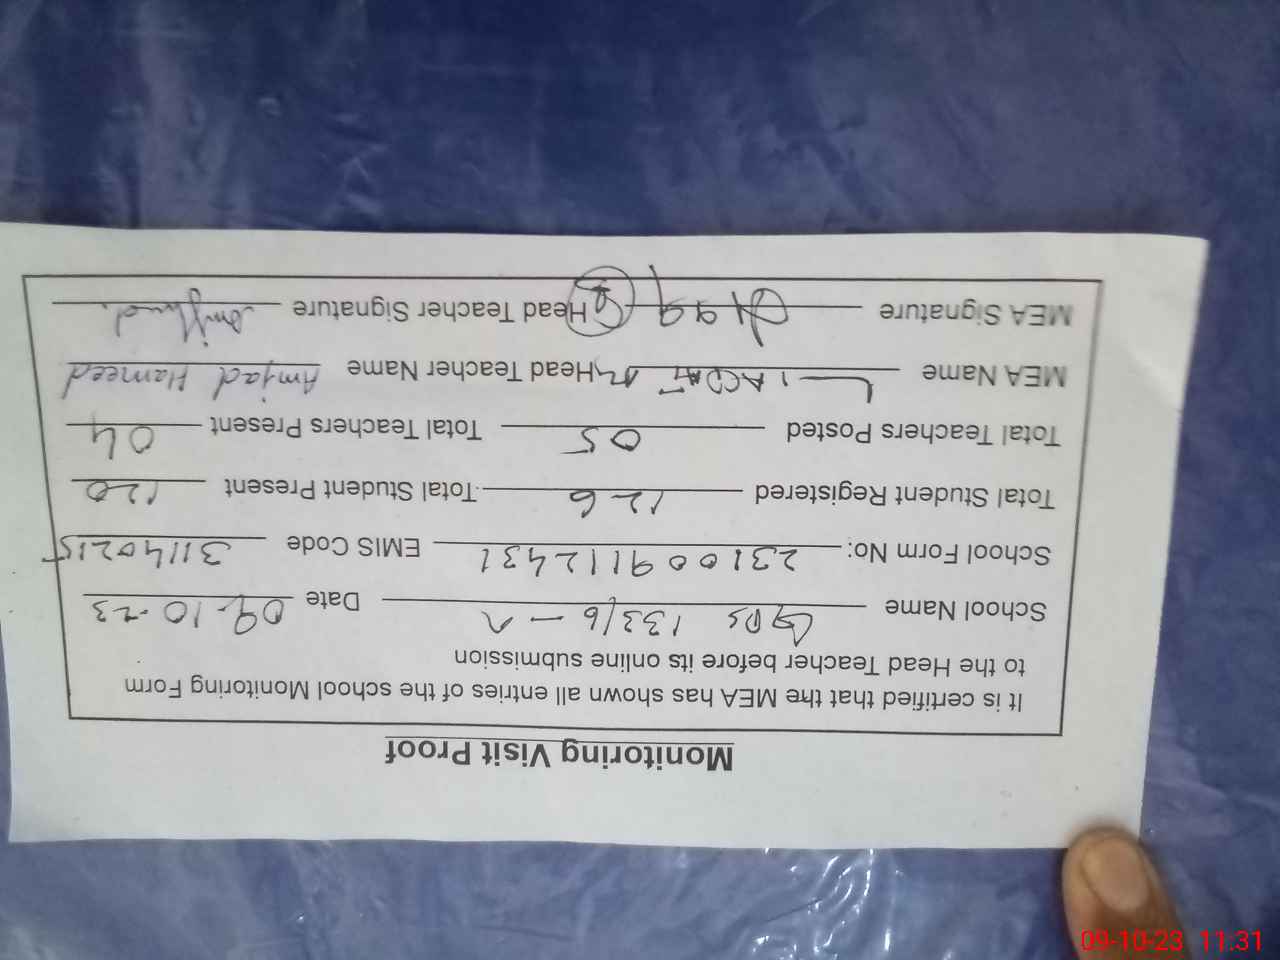 Monitoring Visit Proof
It is certified that the MEA has shown all entries of the school Monitoring Form
to the Head Teacher before its online submission
School Name GPS 133/6-R Date 09-10-23
School Form No: 231009112431 EMIS Code 31140215
Total Student Registered 126 Total Student Present 120
Total Teachers Posted 05 Total Teachers Present 04
MEA Name Head Teacher Name Amjad Hameed
MEA Signature Head Teacher Signature
09-10-23 11:31